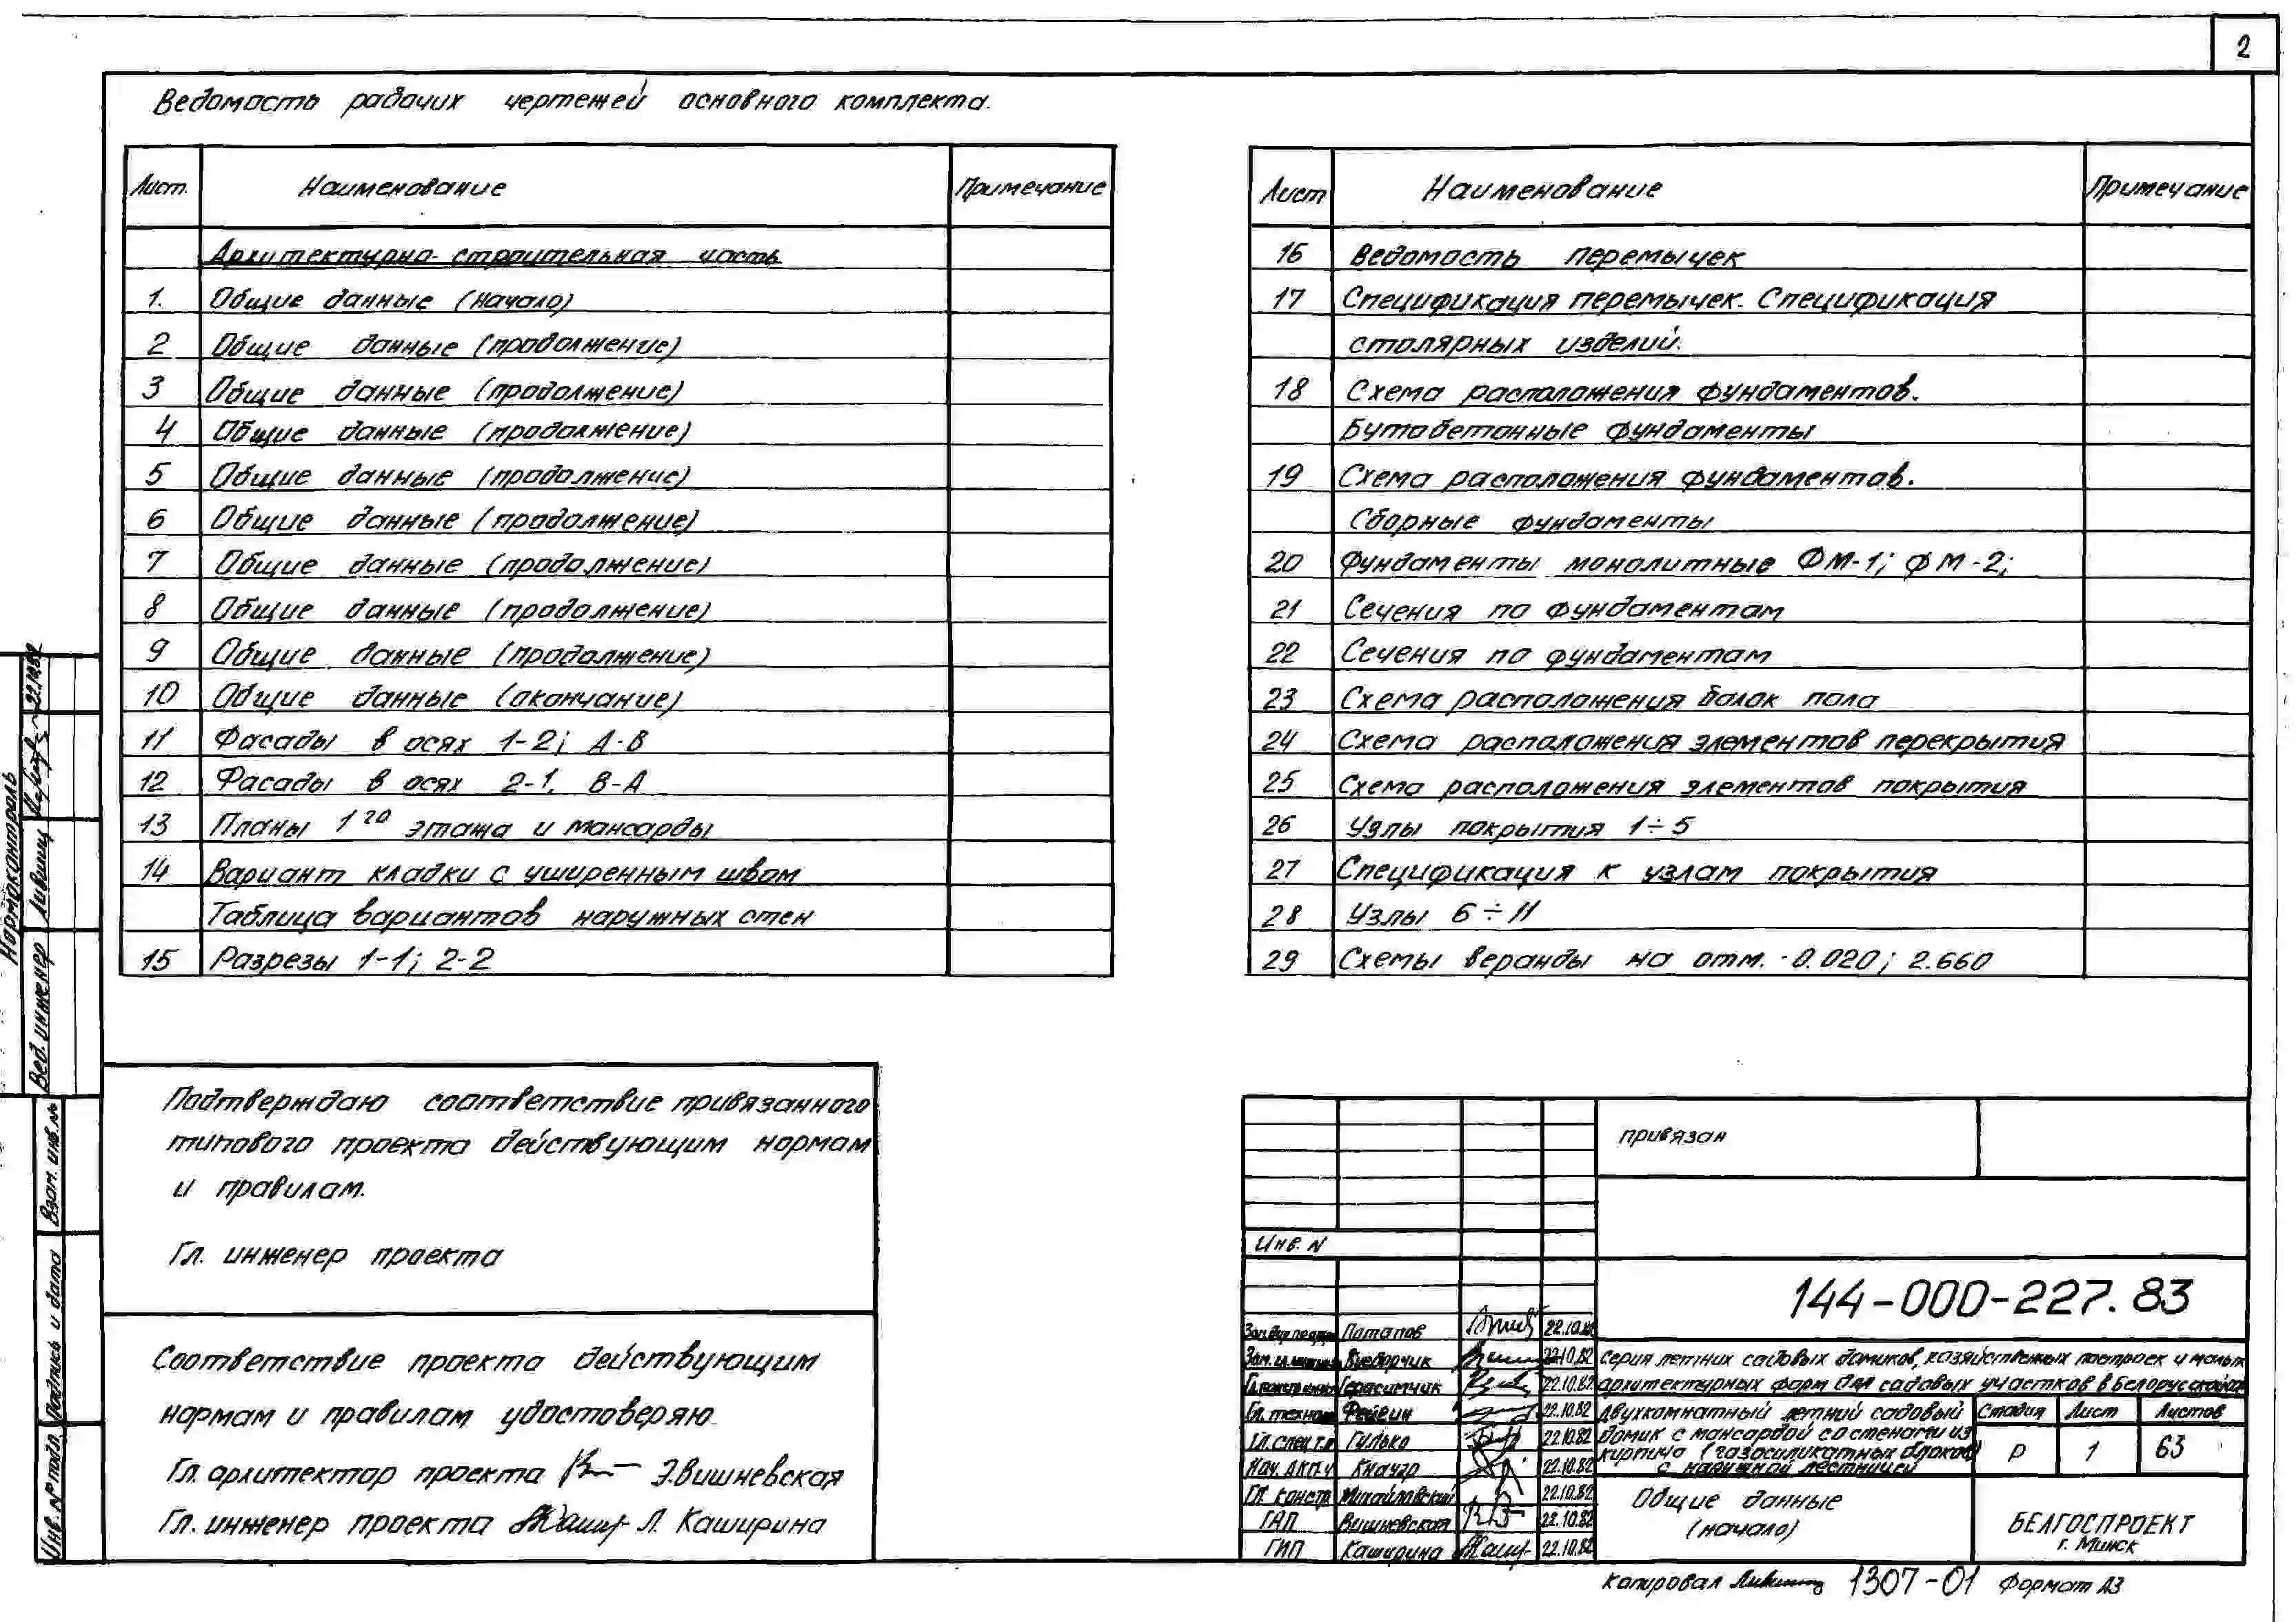 2
Ведомость рабочих чертежей основного комплекта.
Лист. Наименование Примечание
Архитектурно-строительная часть
1. Общие данные (начало)
2 Общие данные (продолжение)
3 Общие данные (продолжение)
4 Общие данные (продолжение)
5 Общие данные (продолжение)
6 Общие данные (продолжение)
7 Общие данные (продолжение)
8 Общие данные (продолжение)
9 Общие данные (продолжение)
10 Общие данные (окончание)
11 Фасады в осях 1-2; А-В
12 Фасады в осях 2-1, В-А
13 Планы 1го этажа и мансарды
14 Вариант кладки с уширенным швом
Таблица вариантов наружных стен
15 Разрезы 1-1; 2-2
Лист Наименование Примечание
16 Ведомость перемычек
17 Спецификация перемычек. Спецификация
столярных изделий.
18 Схема расположения фундаментов.
Бутобетонные фундаменты
19 Схема расположения фундаментов.
Сборные фундаменты
20 Фундаменты монолитные ФМ-1; ФМ-2;
21 Сечения по фундаментам
22 Сечения по фундаментам
23 Схема расположения балок пола
24 Схема расположения элементов перекрытия
25 Схема расположения элементов покрытия
26 Узлы покрытия 1÷5
27 Спецификация к узлам покрытия
28 Узлы 6÷11
29 Схемы веранды на отм. -0.020; 2.660
Нормоконтроль
Вед. инженер Лившиц 22.10.82
Взам. инв. №
Подпись и дата
Инв. № подл.
Подтверждаю соответствие привязанного
типового проекта действующим нормам
и правилам.
Гл. инженер проекта
Соответствие проекта действующим
нормам и правилам удостоверяю
Гл. архитектор проекта Э. Вишневская
Гл. инженер проекта Л. Каширина
привязан
Инв. N
144-000-227.83
Потапов 22.10.82
Выборчик 22.10.82
Герасимчик 22.10.82
Гл. технол. Фейгин 22.10.82
Гл. спец. т.о Гулько 22.10.82
Нач. АКП-4 Кнаугр 22.10.82
Гл. констр. Михайловский 22.10.82
ГАП Вишневская 22.10.82
ГИП Каширина 22.10.82
Серия летних садовых домиков, хозяйственных построек и малых
архитектурных форм для садовых участков в Белорусской ССР
Двухкомнатный летний садовый
домик с мансардой со стенами из
кирпича (газосиликатных блоков)
с наружной лестницей
Стадия Лист Листов
Р 1 63
Общие данные
(начало)
БЕЛГОСПРОЕКТ
г. Минск
Копировал 1307-01 Формат А3